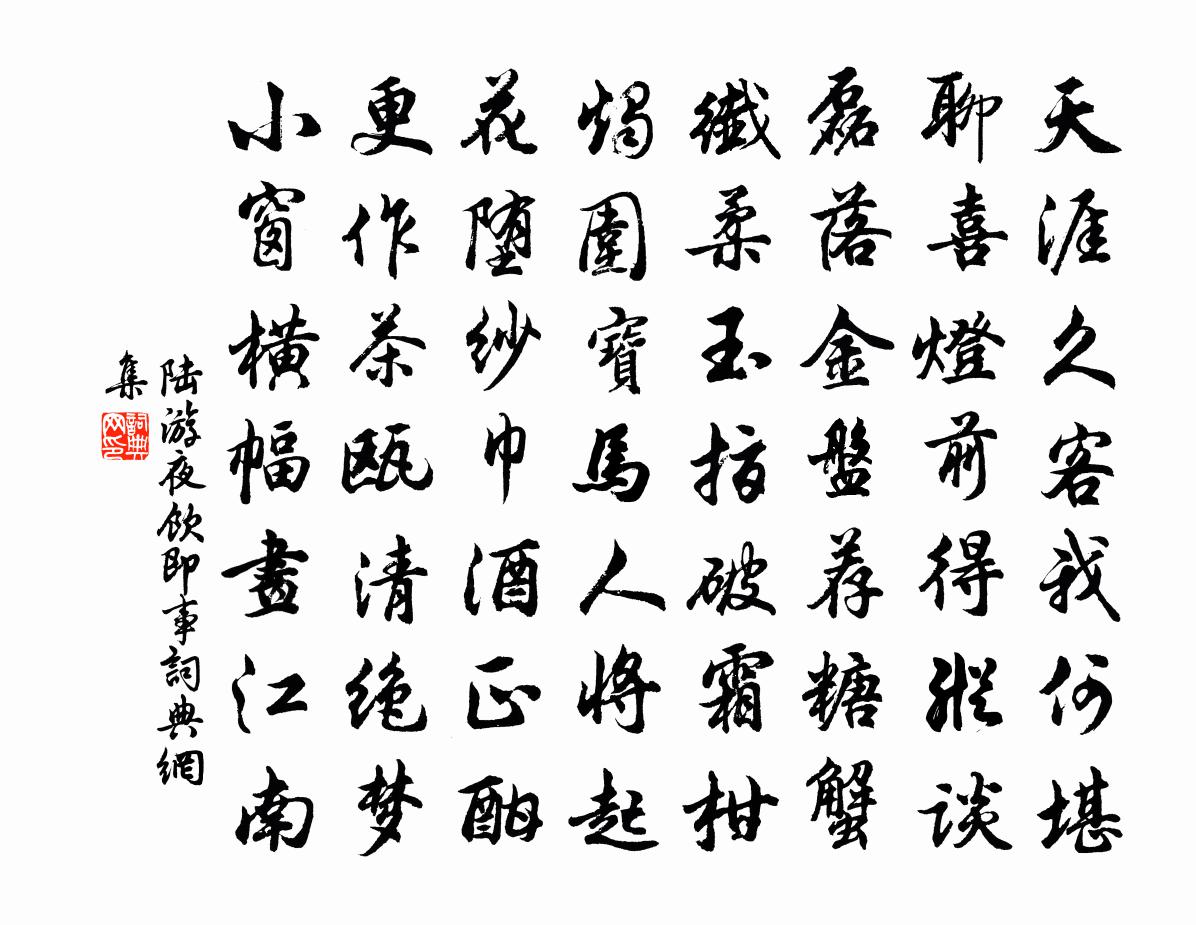 天涯久客我何堪
聊喜燈前得縱談
磊落金盤荐糖蟹
纖柔玉指破霜柑
燭圍寶馬人將起
花墮紗巾酒正酣
更作茶甌清絶夢
小窗橫幅畫江南
陸游夜飲即事詞典網
集
詞典
网印